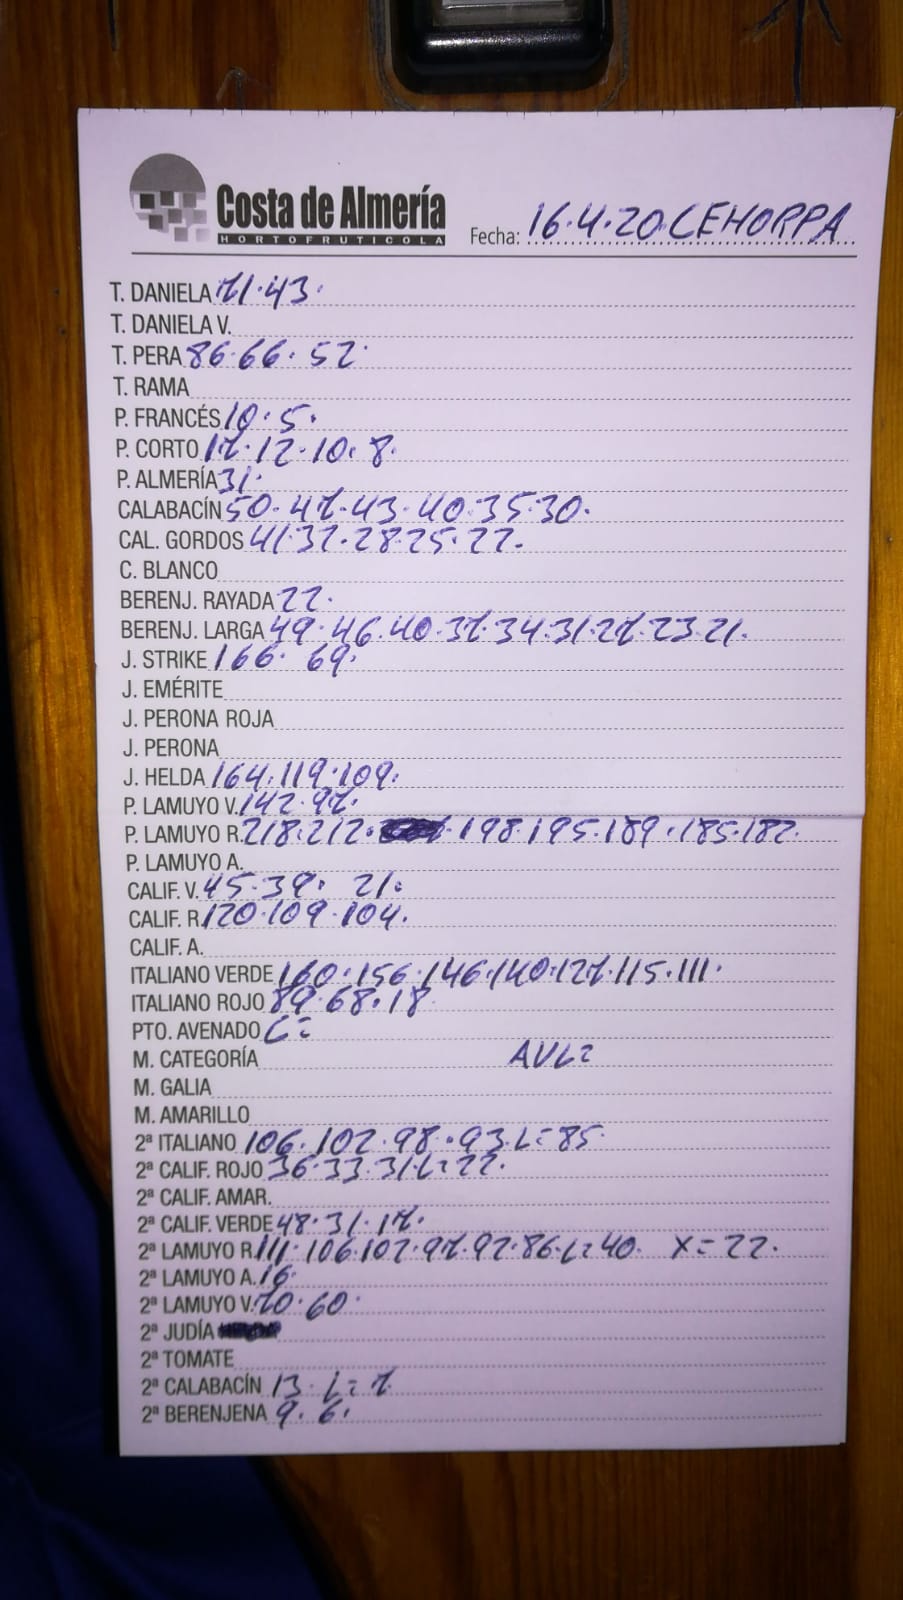 Costa de Almería
HORTOFRUTICOLA
Fecha: 16.4.20 CEHORPA
T. DANIELA 71.43.
T. DANIELA V.
T. PERA 86.66.52.
T. RAMA
P. FRANCÉS 10.5.
P. CORTO 17.12.10.8.
P. ALMERÍA 31.
CALABACÍN 50.47.43.40.35.30.
CAL. GORDOS 41.32.28.25.22.
C. BLANCO
BERENJ. RAYADA 22.
BERENJ. LARGA 49.46.40.37.34.31.27.23.21.
J. STRIKE 166. 69.
J. EMÉRITE
J. PERONA ROJA
J. PERONA
J. HELDA 164.119.109.
P. LAMUYO V. 142.97.
P. LAMUYO R. 218.212. 198.195.189.185.182.
P. LAMUYO A.
CALIF. V. 45.39. 21.
CALIF. R 120.109.104.
CALIF. A.
ITALIANO VERDE 160.156.146.140.127.115.111.
ITALIANO ROJO 89.68.18
PTO. AVENADO C=
M. CATEGORÍA AVL=
M. GALIA
M. AMARILLO
2ª ITALIANO 106.102.98.93.L=85.
2ª CALIF. ROJO 36.33.31.L=22.
2ª CALIF. AMAR.
2ª CALIF. VERDE 48.31.17.
2ª LAMUYO R. 111.106.102.97.92.86.L=40. X=22.
2ª LAMUYO A. 16.
2ª LAMUYO V. 70.60.
2ª JUDÍA
2ª TOMATE
2ª CALABACÍN 13.L=7
2ª BERENJENA 9.6.